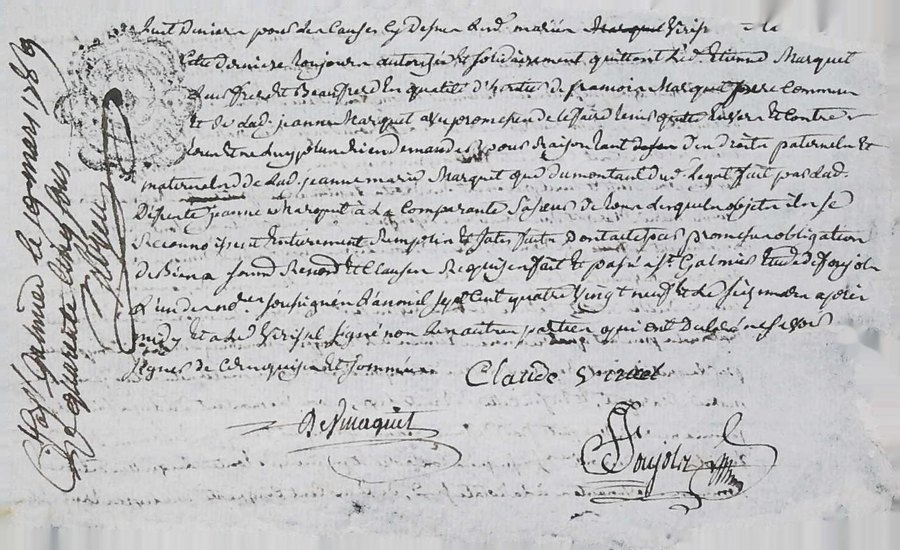 huit deniers pour les causes cy dessus led. mariés Marquet Virissel
cette derniere toujours autorisée et solidairement quittent led. Etienne Marquet
leur frere et beaufrere en qualité d'heritier de francois Marquet pere commun
et de lad. jeanne Marquet avec promesse de le faire tenir quitte envers et contre
tous et ne luy plus rien demander pour raison tant des droits paternels et
maternels de lad. jeanne marie Marquet que du montant du legat fait par lad.
defunte jeanne Marquet à la comparante sa soeur de tous lesquels objets ils se
reconnoissent entierement remplis et satisfaits dont acte par promesse obligation
de biens soumis renond et clauses requises fait et passé a St. Galmier Etude de Poujol
l'un des no.res soussignés l'an mil sept cent quatre vingt neuf et le six mars apres
midy et a led. Virissel signé non les autres parties qui ont declaré ne scavoir
signer de ce enquises et sommées
Claude Virissel
Demarquet
Poujol
St Galmier le 19 mars 1789
quarante cinq sous